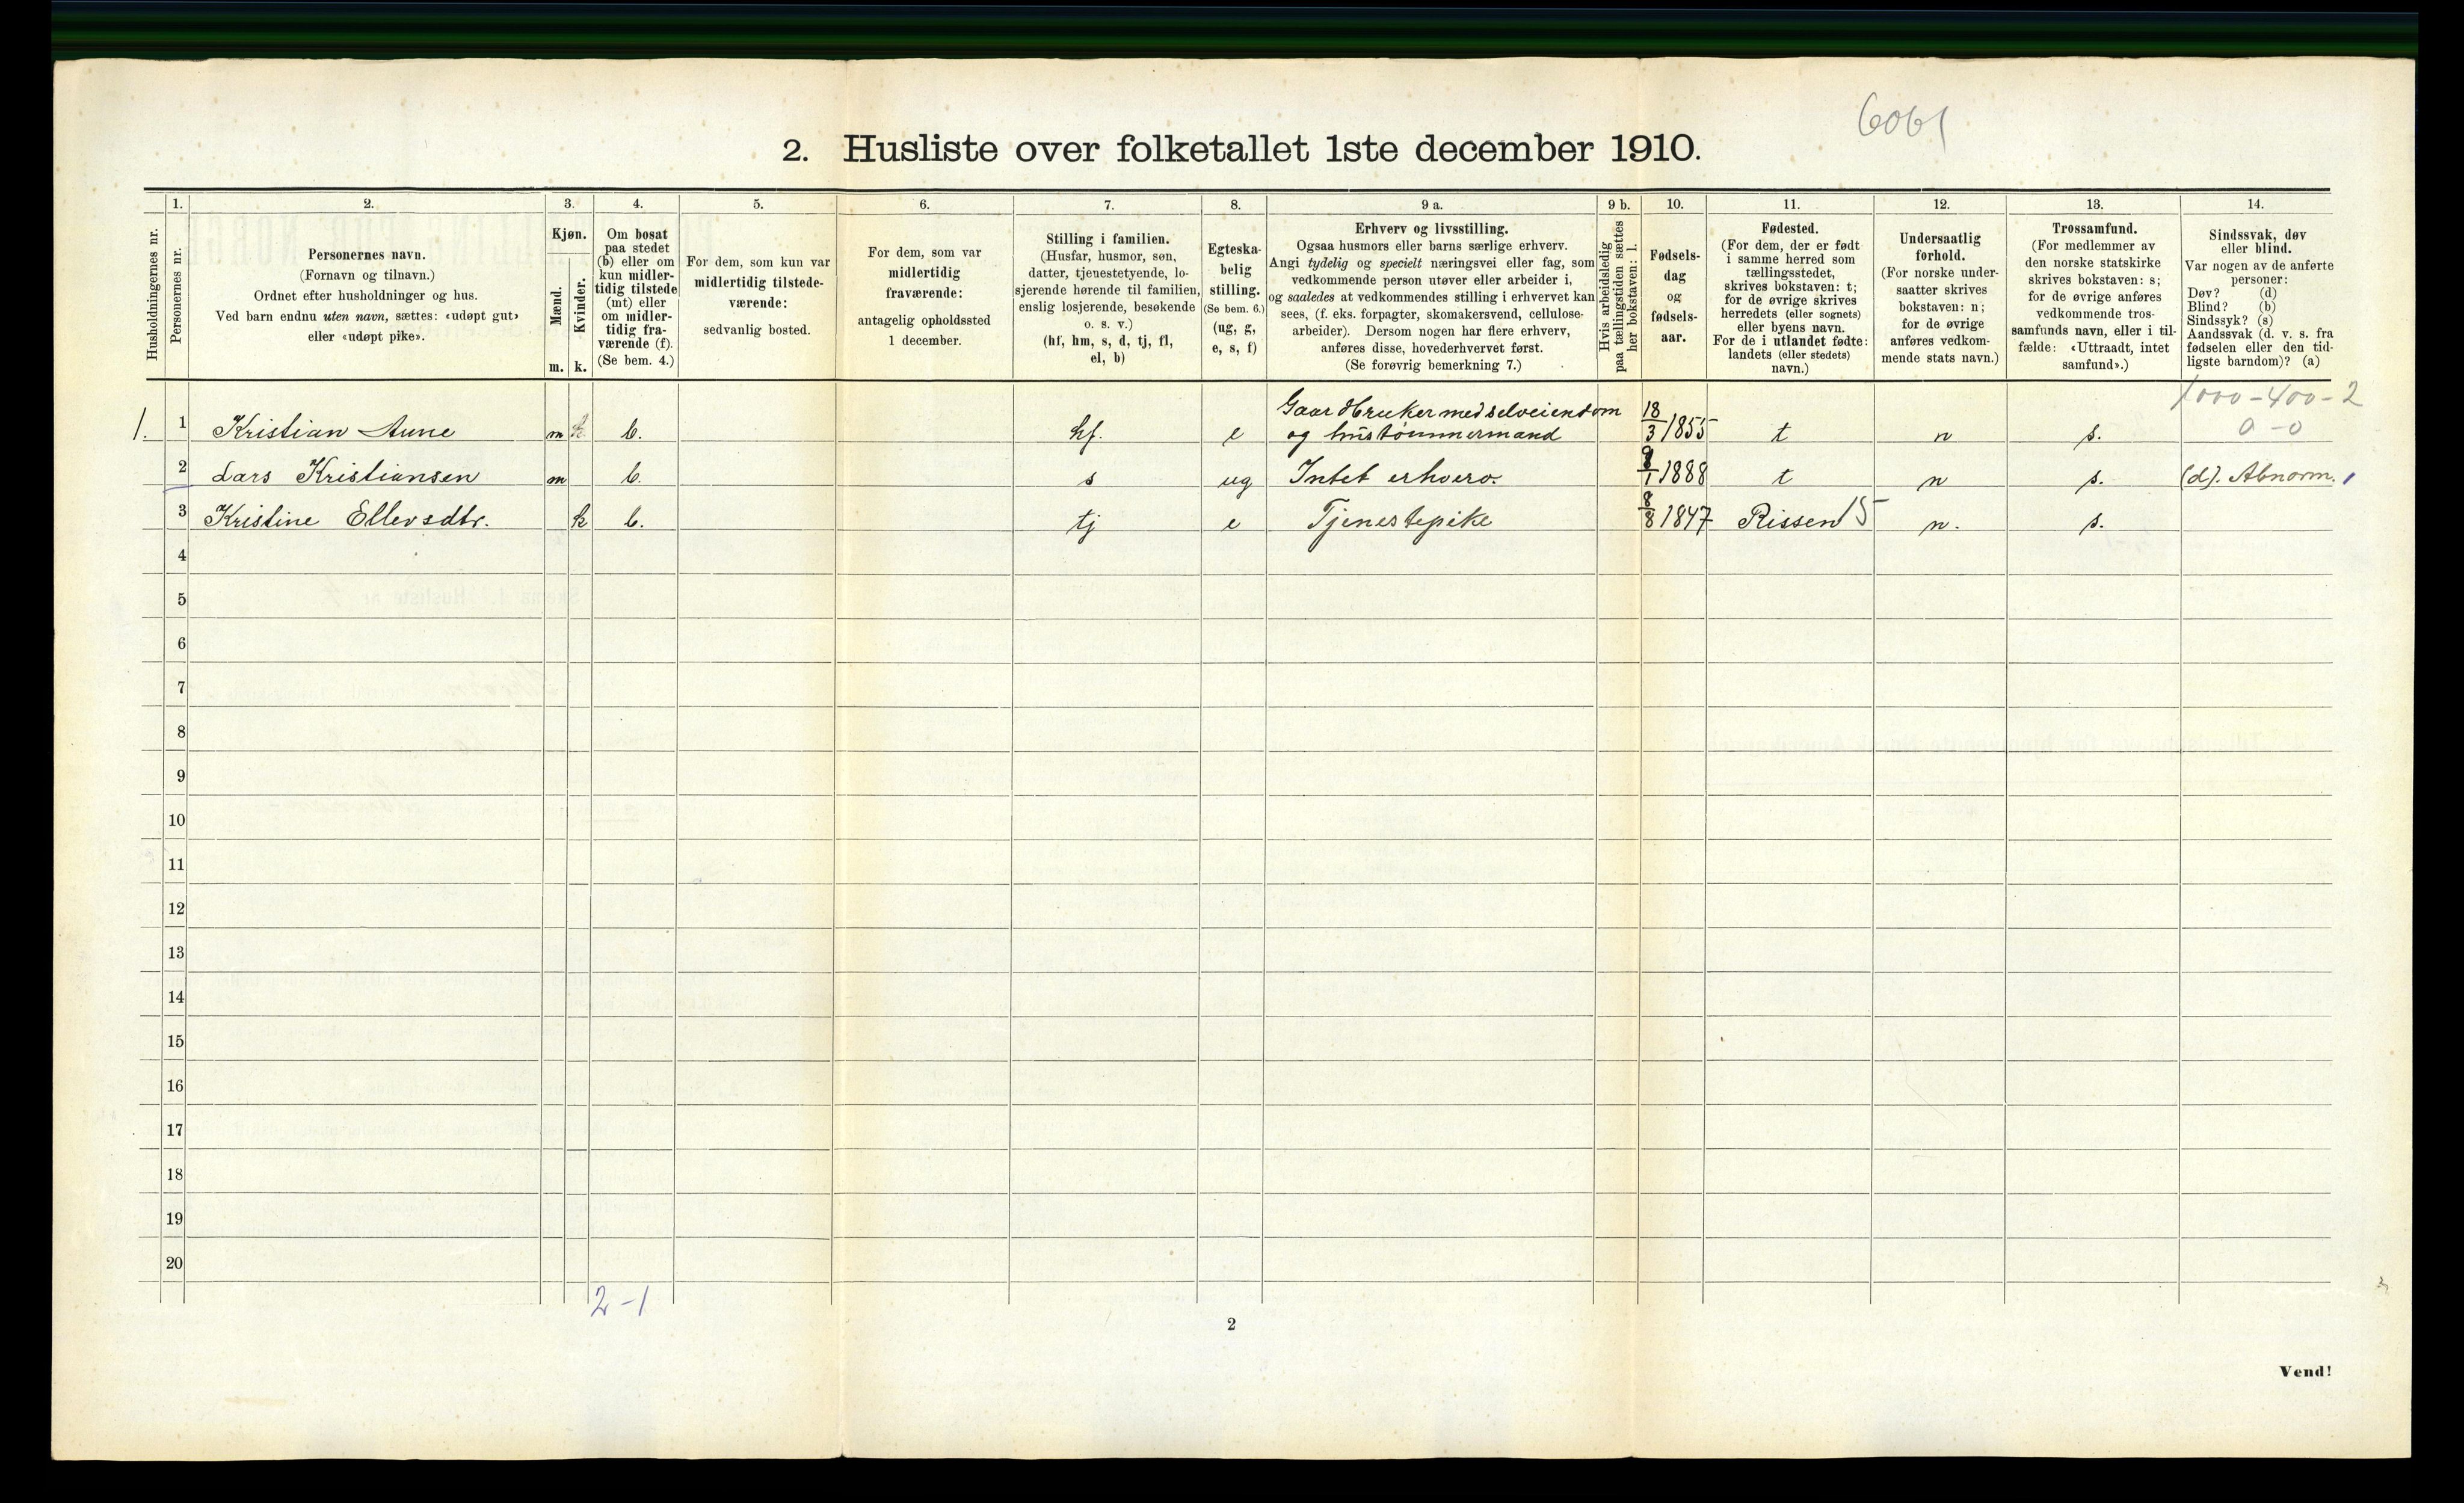 6061
2. Husliste over folketallet 1ste december 1910.
Husholdningernes nr.
1.
Personernes nr.
2.
Personernes navn.
(Fornavn og tilnavn.)
Ordnet efter husholdninger og hus.
Ved barn endnu uten navn, sættes: «udøpt gut»
eller «udøpt pike».
3.
Kjøn.
Mænd.
m.
Kvinder.
k.
4.
Om bosat
paa stedet
(b) eller om
kun midler-
tidig tilstede
(mt) eller
om midler-
tidig fra-
værende (f).
(Se bem. 4.)
5.
For dem, som kun var
midlertidig tilstede-
værende:
sedvanlig bosted.
6.
For dem, som var
midlertidig
fraværende:
antagelig opholdssted
1 december.
7.
Stilling i familien.
(Husfar, husmor, søn,
datter, tjenestetyende, lo-
sjerende hørende til familien,
enslig losjerende, besøkende
o. s. v.)
(hf, hm, s, d, tj, fl,
el, b)
8.
Egteska-
belig
stilling.
(Se bem. 6.)
(ug, g,
e, s, f)
9 a.
Erhverv og livsstilling.
Ogsaa husmors eller barns særlige erhverv.
Angi tydelig og specielt næringsvei eller fag, som
vedkommende person utøver eller arbeider i,
og saaledes at vedkommendes stilling i erhvervet kan
sees, (f. eks. forpagter, skomakersvend, cellulose-
arbeider). Dersom nogen har flere erhverv,
anføres disse, hovederhvervet først.
(Se forøvrig bemerkning 7.)
9 b.
Hvis arbeidsledig
paa tællingstiden sættes
her bokstaven: l.
10.
Fødsels-
dag
og
fødsels-
aar.
11.
Fødested.
(For dem, der er født
i samme herred som
tællingsstedet,
skrives bokstaven: t;
for de øvrige skrives
herredets (eller sognets)
eller byens navn.
For de i utlandet fødte:
landets (eller stedets)
navn.)
12.
Undersaatlig
forhold.
(For norske under-
saatter skrives
bokstaven: n;
for de øvrige
anføres vedkom-
mende stats navn.)
13.
Trossamfund.
(For medlemmer av
den norske statskirke
skrives bokstaven: s;
for de øvrige anføres
vedkommende tros-
samfunds navn, eller i til-
fælde: «Uttraadt, intet
samfund».)
14.
Sindssvak, døv
eller blind.
Var nogen av de anførte
personer:
Døv? (d)
Blind? (b)
Sindssyk? (s)
Aandssvak (d. v. s. fra
fødselen eller den tid-
ligste barndom)? (a)
1000-400-2
0-0
1. 1 Kristian Aune m k b. hf. e Gaardbruker med selveiendom
og hustømmermand 18/3 1855 t n s.
2 Lars Kristiansen m b. s ug Intet erhverv. 1888 t n s. (d). Abnorm.
3 Kristine Ellevsdtr. k b. tj e Tjenestepike 8/8 1847 Rissen 15 n. s.
4
5
6
7
8
9
10
11
12
13
14
15
16
17
18
19
20
2-1
2
Vend!